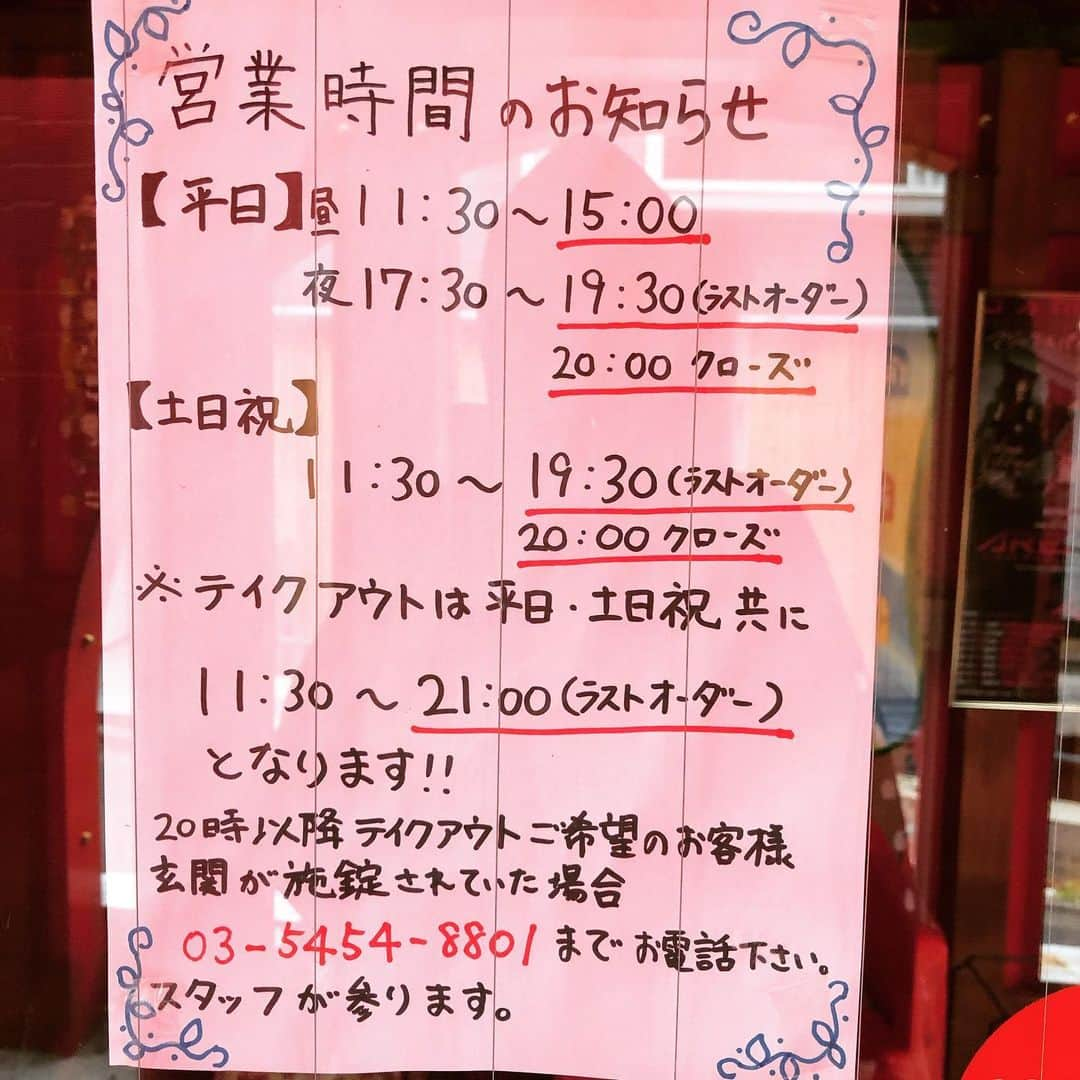 営業時間のお知らせ
【平日】昼11:30~15:00
夜17:30~19:30(ラストオーダー)
20:00クローズ
【土日祝】
11:30~19:30(ラストオーダー)
20:00クローズ
※テイクアウトは平日・土日祝共に
11:30~21:00(ラストオーダー)
となります!!
20時以降テイクアウトご希望のお客様
玄関が施錠されていた場合
03-5454-8801までお電話下さい。
スタッフが参ります。